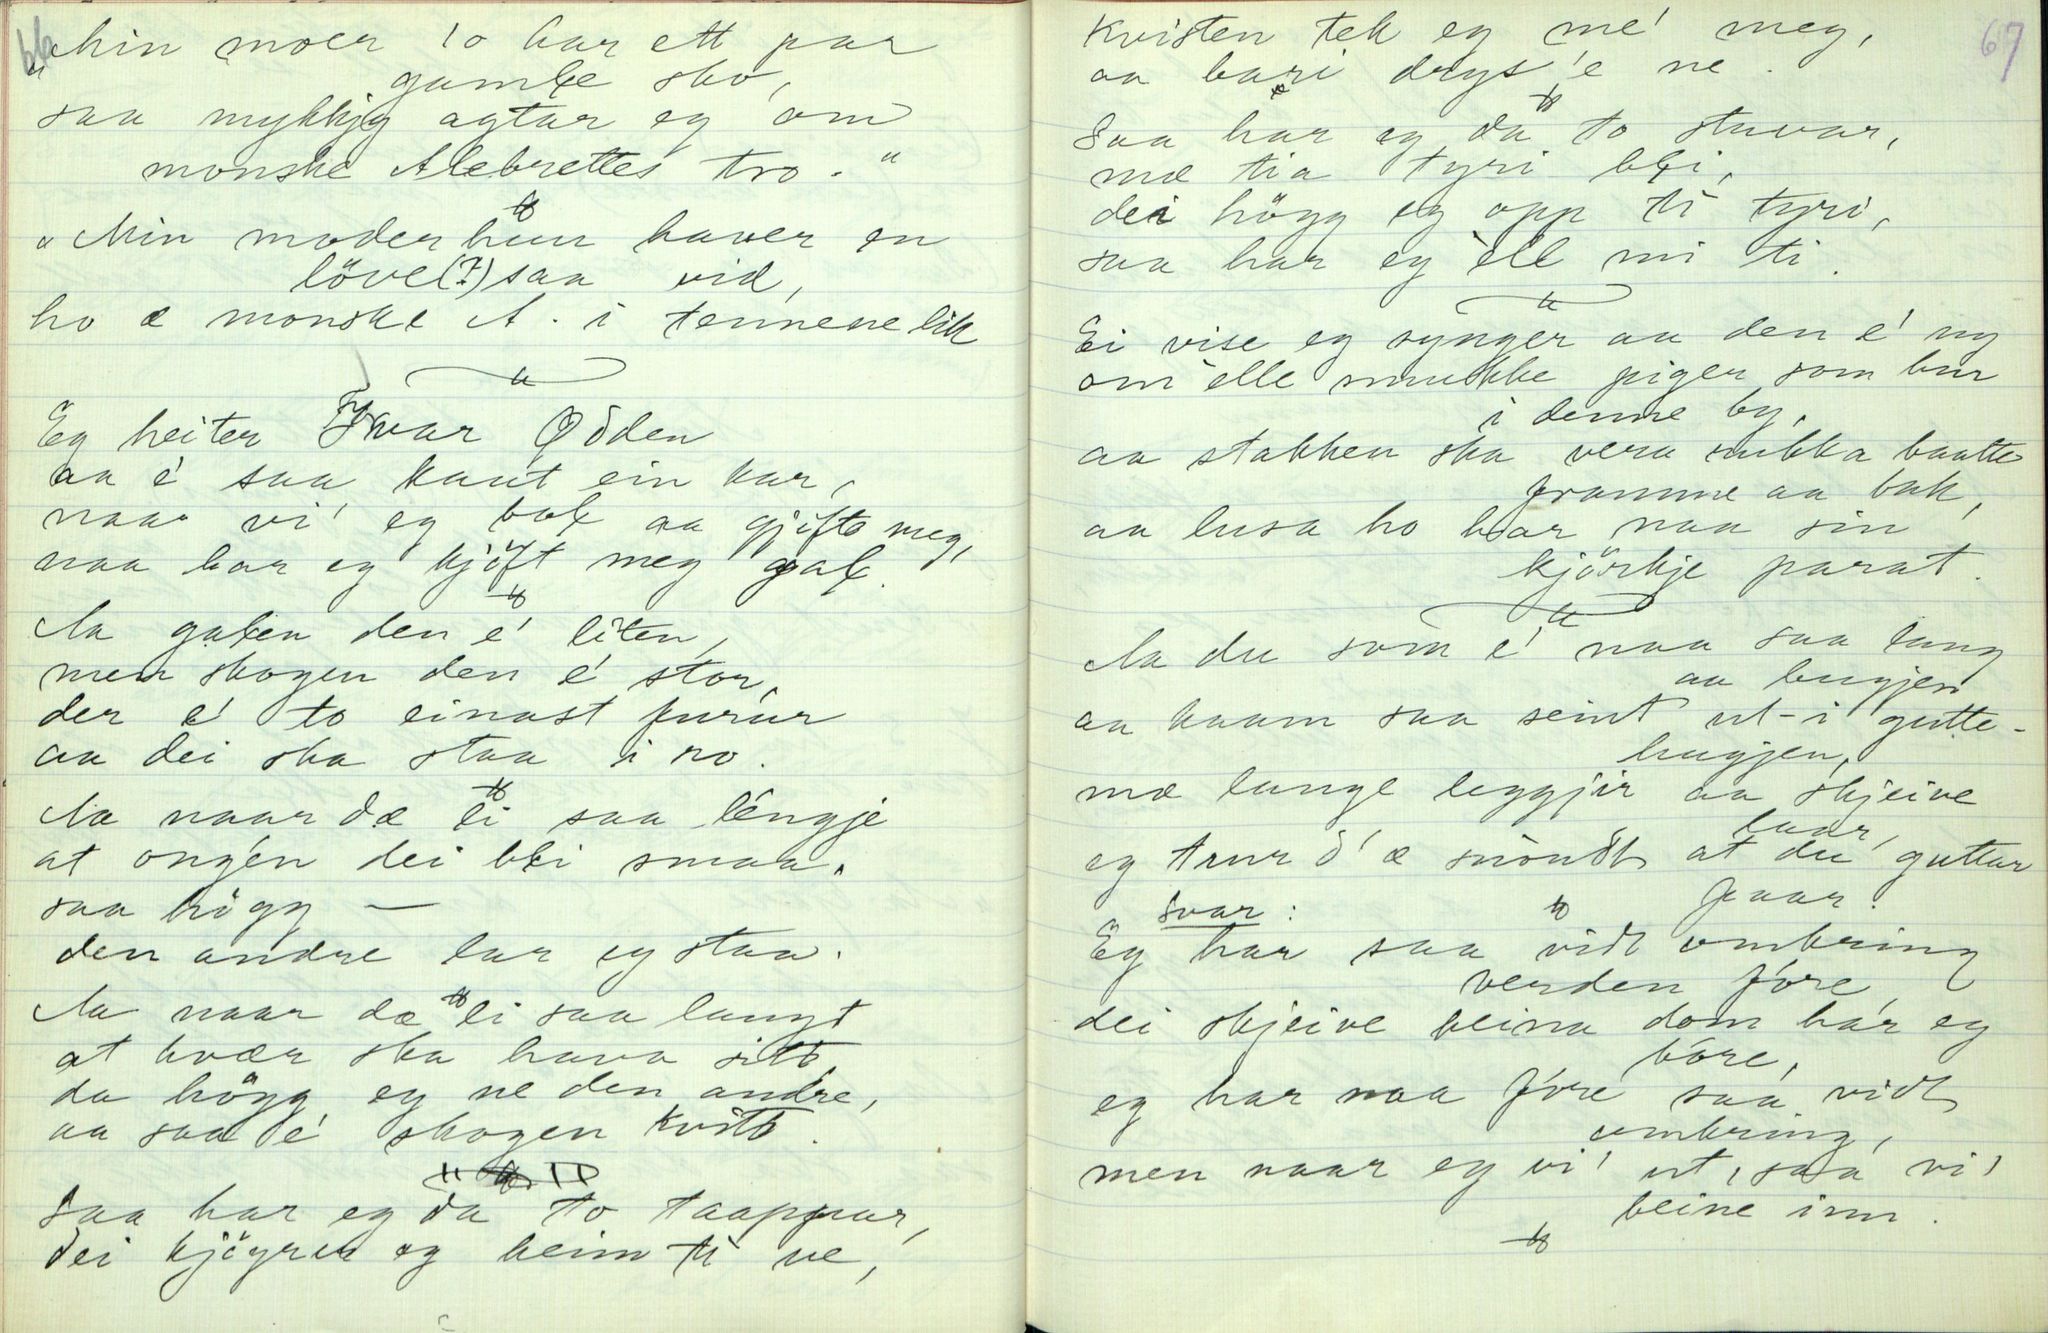 66
"Min moer 'o har ett par
gamle sko,
saa mykkjy agtar eg om
monske Alebrettes tro."
"Min moder hun haver en
löve(?) saa vid,
ho æ monske A. i tennene lik
Eg heiter Ivar Odden
aa é saa kaut ein kar,
naa vi' eg bal aa gjifte meg,
naa har eg kjöft meg gal.
Aa galen den é liten,
men skogen den é stor,
der é to einast furur
aa dei ska staa i ro.
Aa naar dæ li saa lengje
at ongen dei bli smaa,
saa högg —
den andre lar eg staa.
Aa naar dæ li saa langt
at hvær ska hava sitt,
da högg eg ne den andre,
aa saa é skogen kvitt.
Saa har eg da to taappar,
dei kjöyrer eg heim ti ve,
67
Kvisten tek eg mé meg,
aa bari drys'e ne.
Saa har eg da to stuvar,
mæ tia tyri bli,
dei högg eg opp ti tyri,
saa har eg ell mi ti.
Ei vise eg synger aa den é ny
om elle smukke piger som bur
i denne by,
aa stakken ska vera sukka baatte
framme aa bak,
aa lusa ho har naa sin
kjörkje parat.
Aa du som é naa saa lang
aa bugjen
aa kaam saa seint ut-i gutte-
hugjen,
mæ lange leggjir aa skjeive
laar,
eg trur d'æ snöudt at du guttar
faar.
Svar:
Eg har saa vidt ombring
verden fóre
dei skjeive beina dom hár eg
bóre,
eg har naa fóre saa vidt
ombring,
men naar eg vi' ut, saa vi'
beine inn.